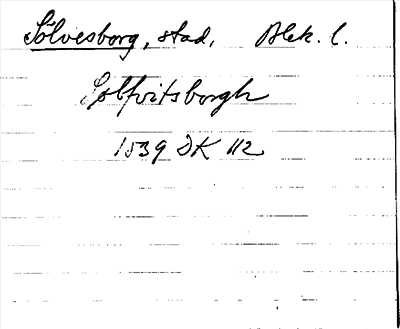 Sölvesborg, stad, Blek. l.
Solfvitsborgh
1539 DK 112